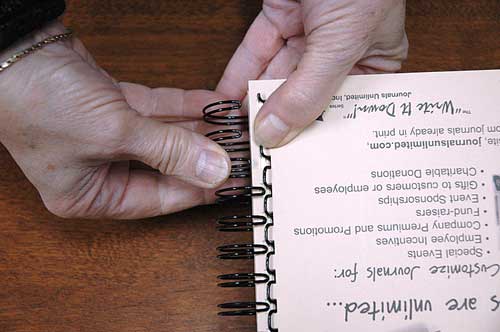 s are unlimited...
Customize Journals for:
• Special Events
• Employee Incentives
• Company Premiums and Promotions
• Fund-raisers
• Event Sponsorships
• Gifts to customers or employees
• Charitable Donations
site, journalsunlimited.com,
om journals already in print.
The "Write It Down!"™ Series
Journals Unlimited, Inc.